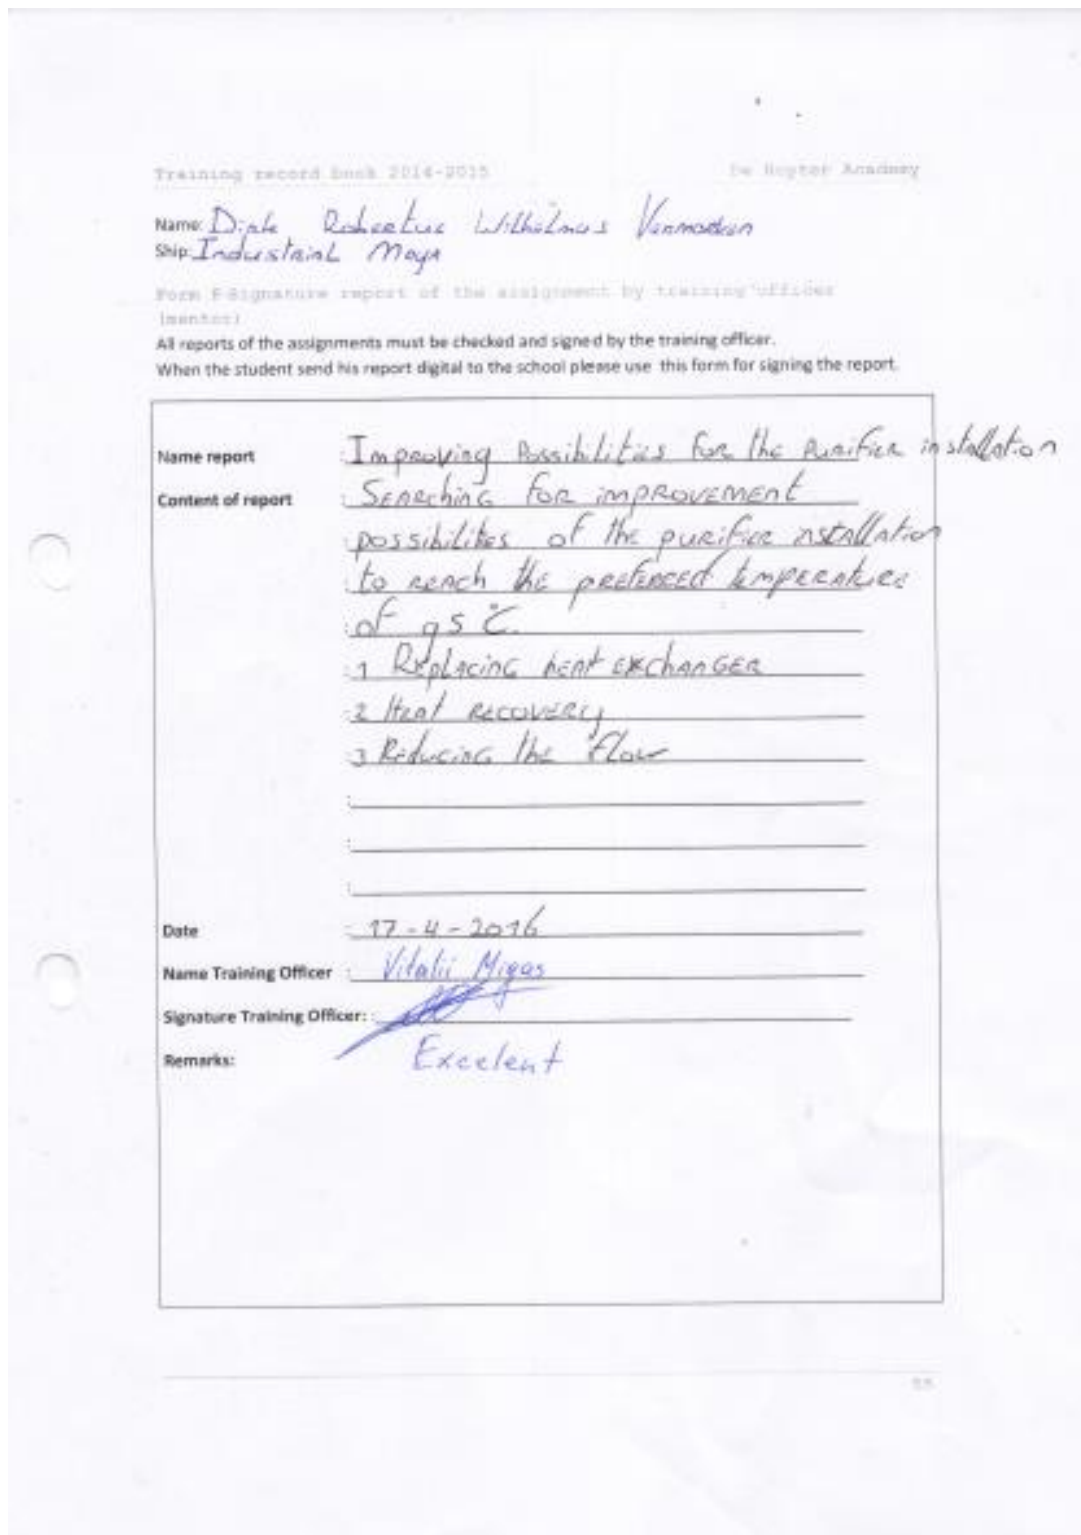 Training record book 2014-2015 De Ruyter Academy
Name: Dirk Robertus Wilhelmus
Ship: Industrial Maya
Form F Signature report of the assignment by training officer
(mentor)
All reports of the assignments must be checked and signed by the training officer.
When the student send his report digital to the school please use this form for signing the report.
Name report : Improving Possibilities for the purifier installation
Content of report : Searching for improvement
: possibilities of the purifier installation
: to reach the preferred temperature
: of 95 °C.
: 1 Replacing heat exchanger
: 2 Heat recovery
: 3 Reducing the flow
:
:
:
Date : 17-4-2016
Name Training Officer : Vitalii Migas
Signature Training Officer: :
Remarks: Excelent
55